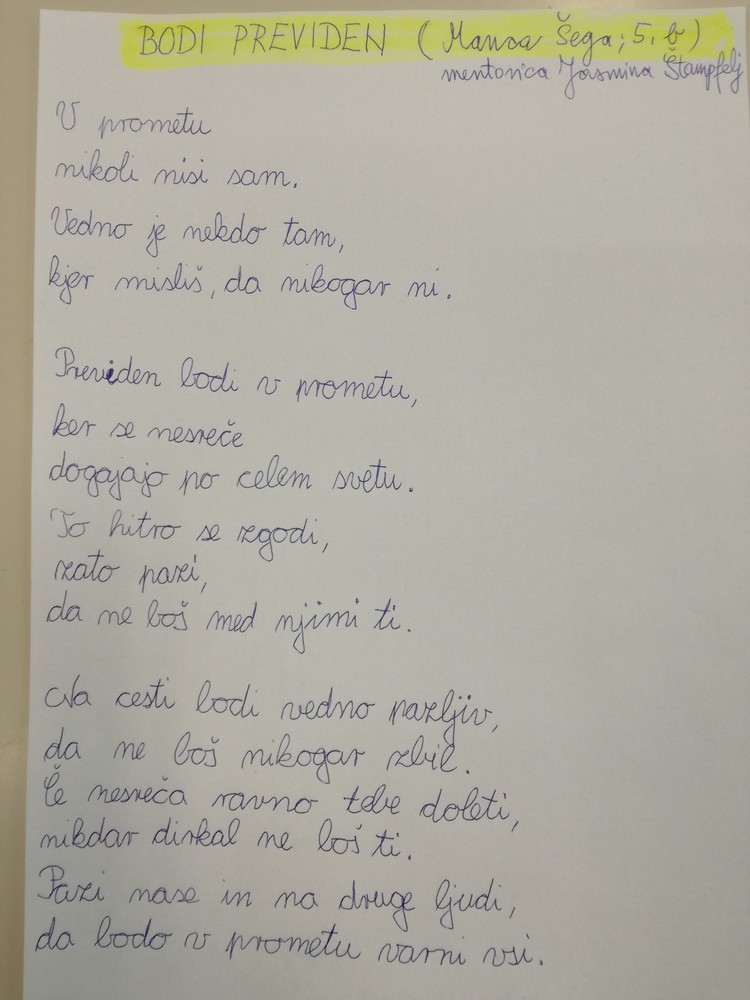 BODI PREVIDEN (Manca Šega; 5. b)
mentorica Jasmina Štampfelj
V prometu
nikoli nisi sam.
Vedno je nekdo tam,
kjer misliš, da nikogar ni.
Previden bodi v prometu,
ker se nesreče
dogajajo po celem svetu.
To hitro se zgodi,
zato pazi,
da ne boš med njimi ti.
Na cesti bodi vedno pazljiv,
da ne boš nikogar zbil.
Če nesreča ravno tebe doleti,
nikdar dirkal ne boš ti.
Pazi nase in na druge ljudi,
da bodo v prometu varni vsi.